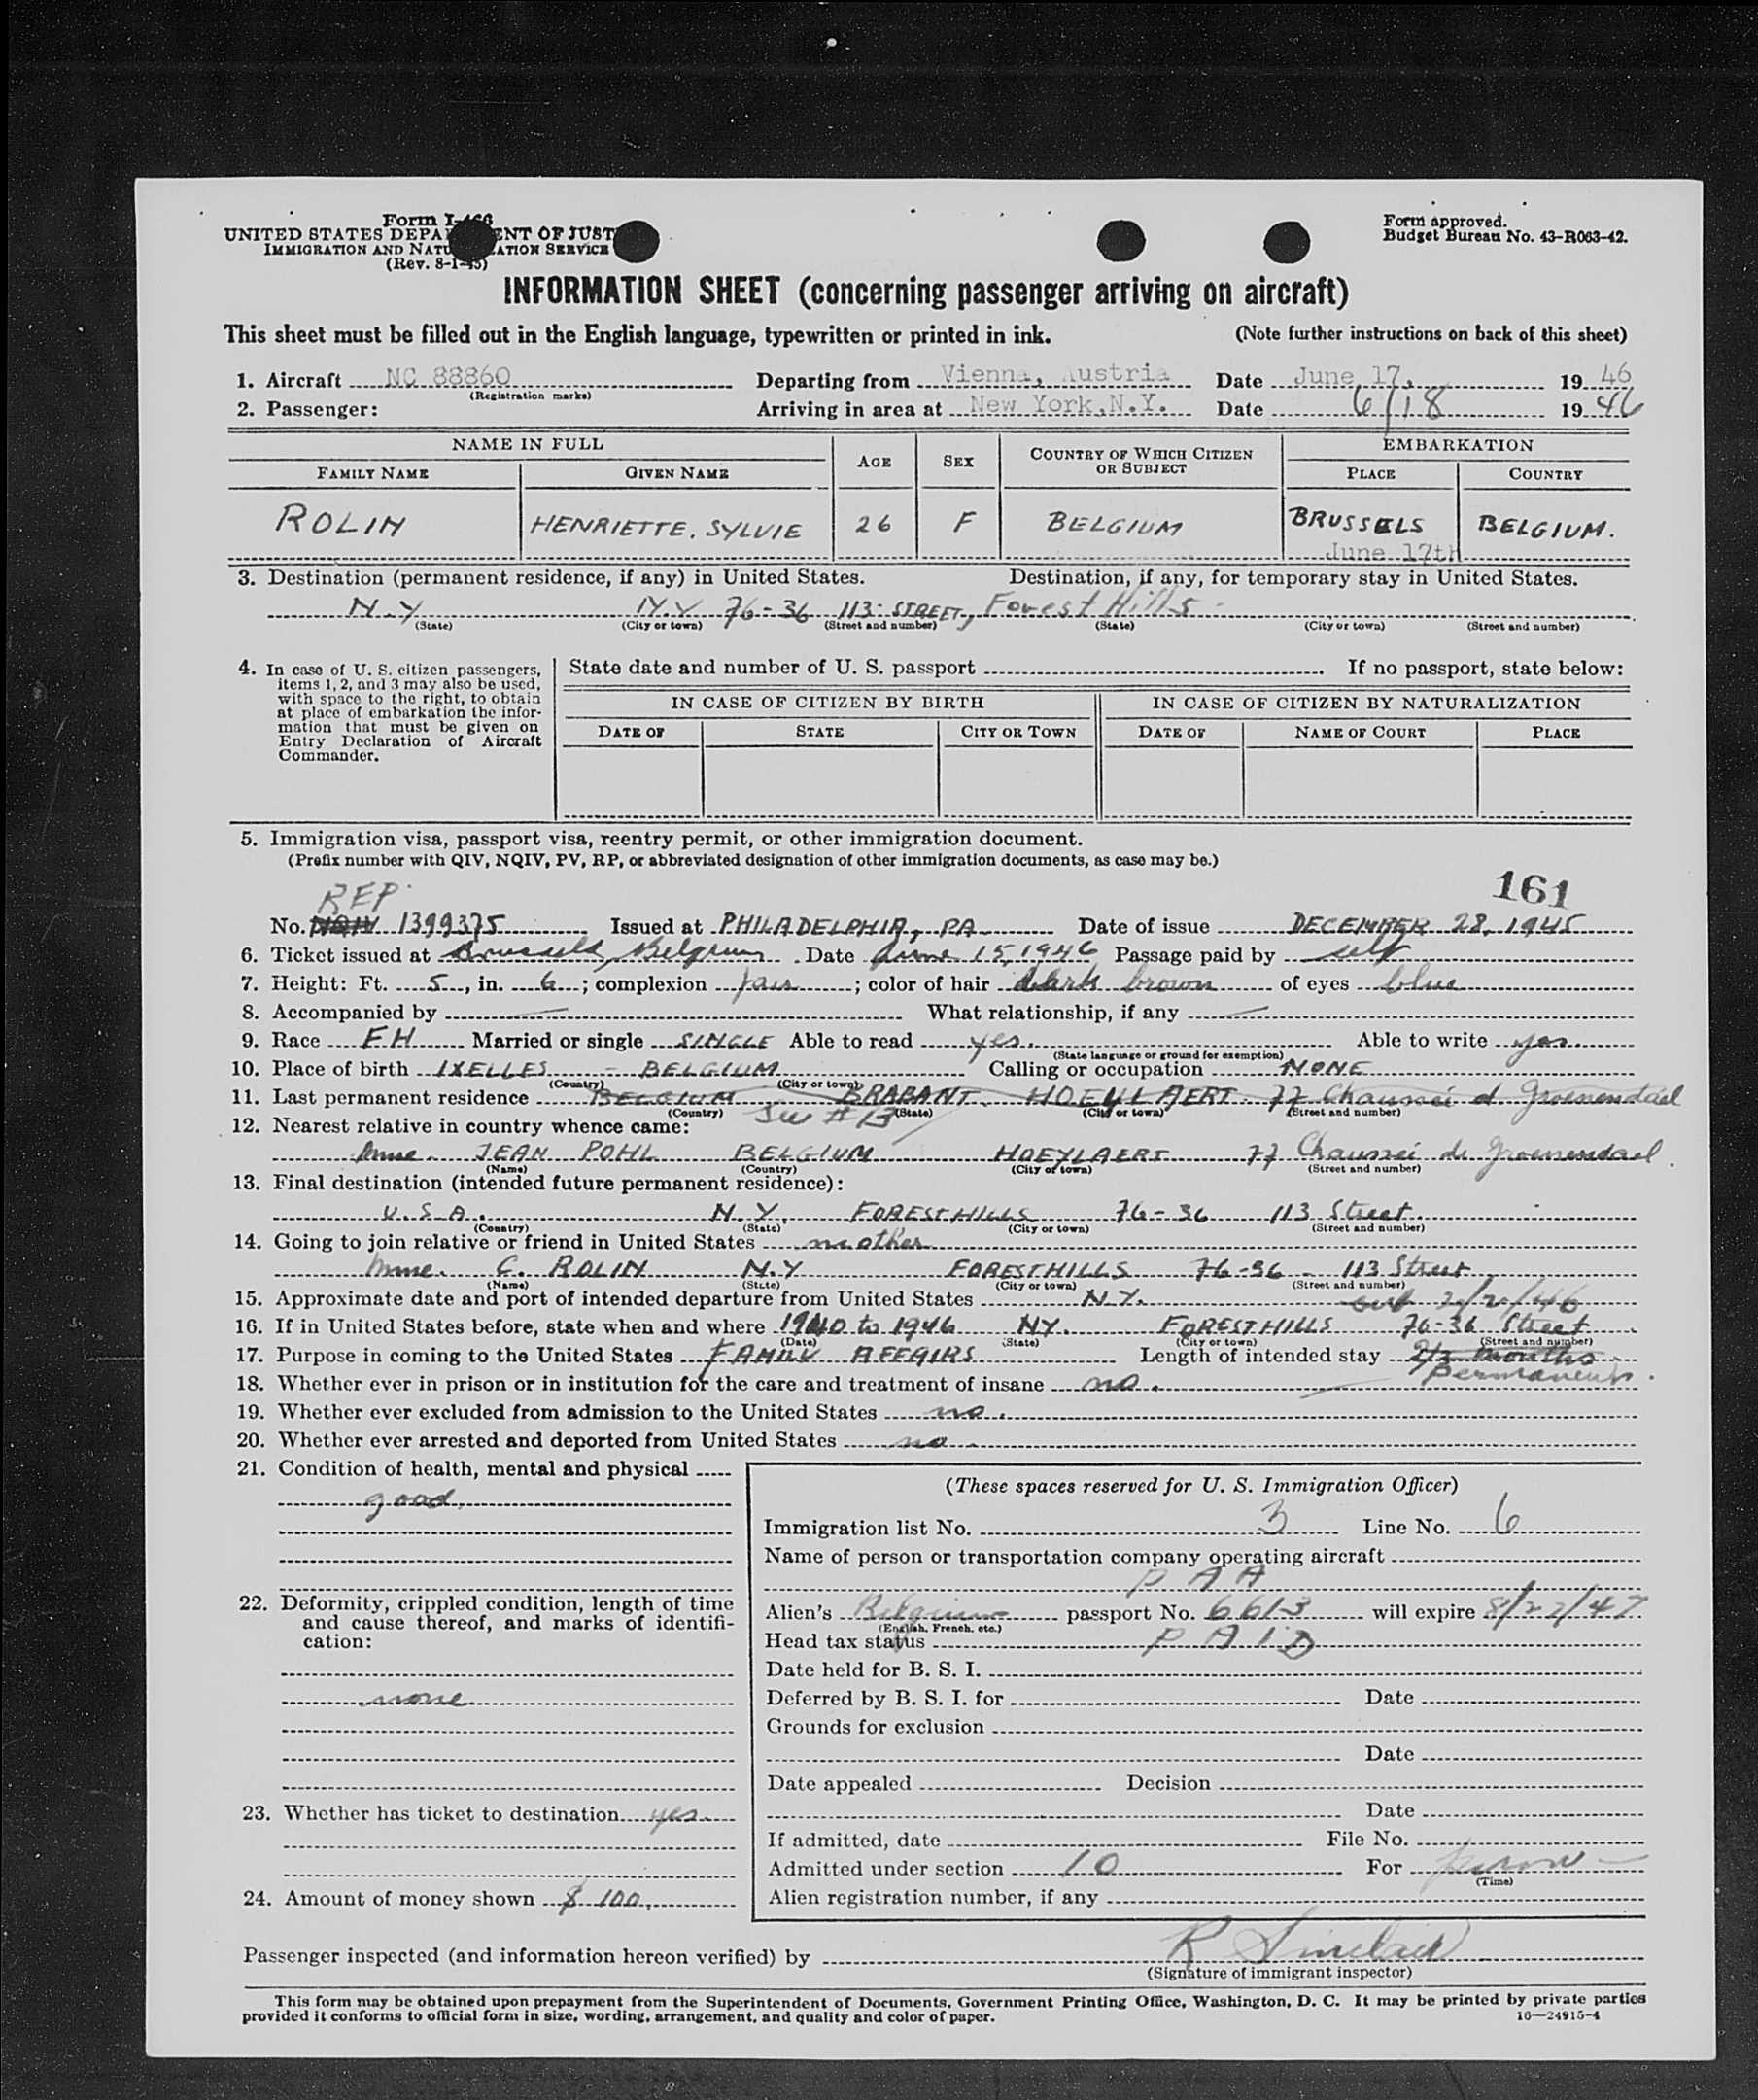 Form I-466
UNITED STATES DEPARTMENT OF JUSTICE
IMMIGRATION AND NATURALIZATION SERVICE
(Rev. 8-1-45)
Form approved.
Budget Bureau No. 43-R063-42.
INFORMATION SHEET (concerning passenger arriving on aircraft)
This sheet must be filled out in the English language, typewritten or printed in ink. (Note further instructions on back of this sheet)
1. Aircraft NC 88860 Departing from Vienna, Austria Date June 17, 1946
(Registration marks)
2. Passenger: Arriving in area at New York, N.Y. Date 6/18 1946
NAME IN FULL AGE SEX COUNTRY OF WHICH CITIZEN OR SUBJECT EMBARKATION
FAMILY NAME GIVEN NAME PLACE COUNTRY
ROLIN HENRIETTE. SYLVIE 26 F BELGIUM BRUSSELS BELGIUM.
June 17th
3. Destination (permanent residence, if any) in United States. Destination, if any, for temporary stay in United States.
N.Y N.Y 76-36 113 STREET, Forest Hills -
(State) (City or town) (Street and number) (State) (City or town) (Street and number)
4. In case of U. S. citizen passengers, items 1, 2, and 3 may also be used, with space to the right, to obtain at place of embarkation the information that must be given on Entry Declaration of Aircraft Commander.
State date and number of U. S. passport . If no passport, state below:
IN CASE OF CITIZEN BY BIRTH IN CASE OF CITIZEN BY NATURALIZATION
DATE OF STATE CITY OR TOWN DATE OF NAME OF COURT PLACE
5. Immigration visa, passport visa, reentry permit, or other immigration document.
(Prefix number with QIV, NQIV, PV, RP, or abbreviated designation of other immigration documents, as case may be.)
161
REP
No. NQIV 1399375 Issued at PHILADELPHIA, PA Date of issue DECEMBER 28, 1945
6. Ticket issued at Brussels, Belgium Date June 15, 1946 Passage paid by self
7. Height: Ft. 5, in. 6; complexion fair; color of hair dark brown of eyes blue
8. Accompanied by — What relationship, if any —
9. Race FH Married or single SINGLE Able to read yes. Able to write yes.
(State language or ground for exemption)
10. Place of birth IXELLES - BELGIUM Calling or occupation NONE
(Country) (City or town)
11. Last permanent residence BELGIUM BRABANT HOEYLAERT 77 Chaussée d Groenendael
(Country) See # 13 (State) (City or town) (Street and number)
12. Nearest relative in country whence came:
Mme. JEAN POHL BELGIUM HOEYLAERT 77 Chaussée de Groenendael.
(Name) (Country) (City or town) (Street and number)
13. Final destination (intended future permanent residence):
U.S.A. N.Y. FOREST HILLS 76-36 113 Street.
(Country) (State) (City or town) (Street and number)
14. Going to join relative or friend in United States mother
Mme. C. ROLIN N.Y FOREST HILLS 76-36 - 113 Street
(Name) (State) (City or town) (Street and number)
15. Approximate date and port of intended departure from United States N.Y. out 2/2/46
16. If in United States before, state when and where 1940 to 1946 NY. FOREST HILLS 76-36 Street
(Date) (State) (City or town) (Street and number)
17. Purpose in coming to the United States FAMILY AFFAIRS Length of intended stay 2/3 months
Permanent.
18. Whether ever in prison or in institution for the care and treatment of insane no.
19. Whether ever excluded from admission to the United States no.
20. Whether ever arrested and deported from United States no.
21. Condition of health, mental and physical
good.
22. Deformity, crippled condition, length of time and cause thereof, and marks of identification:
none
23. Whether has ticket to destination yes.
24. Amount of money shown $ 100.
(These spaces reserved for U. S. Immigration Officer)
Immigration list No. 3 Line No. 6
Name of person or transportation company operating aircraft
P A A
Alien's Belgium passport No. 6613 will expire 8/22/47
(English, French, etc.)
Head tax status PAID
Date held for B. S. I.
Deferred by B. S. I. for Date
Grounds for exclusion
Date
Date appealed Decision
Date
If admitted, date File No.
Admitted under section 10 For
(Time)
Alien registration number, if any
Passenger inspected (and information hereon verified) by R Sinclair
(Signature of immigrant inspector)
This form may be obtained upon prepayment from the Superintendent of Documents, Government Printing Office, Washington, D. C. It may be printed by private parties
provided it conforms to official form in size, wording, arrangement, and quality and color of paper. 16—24915-4